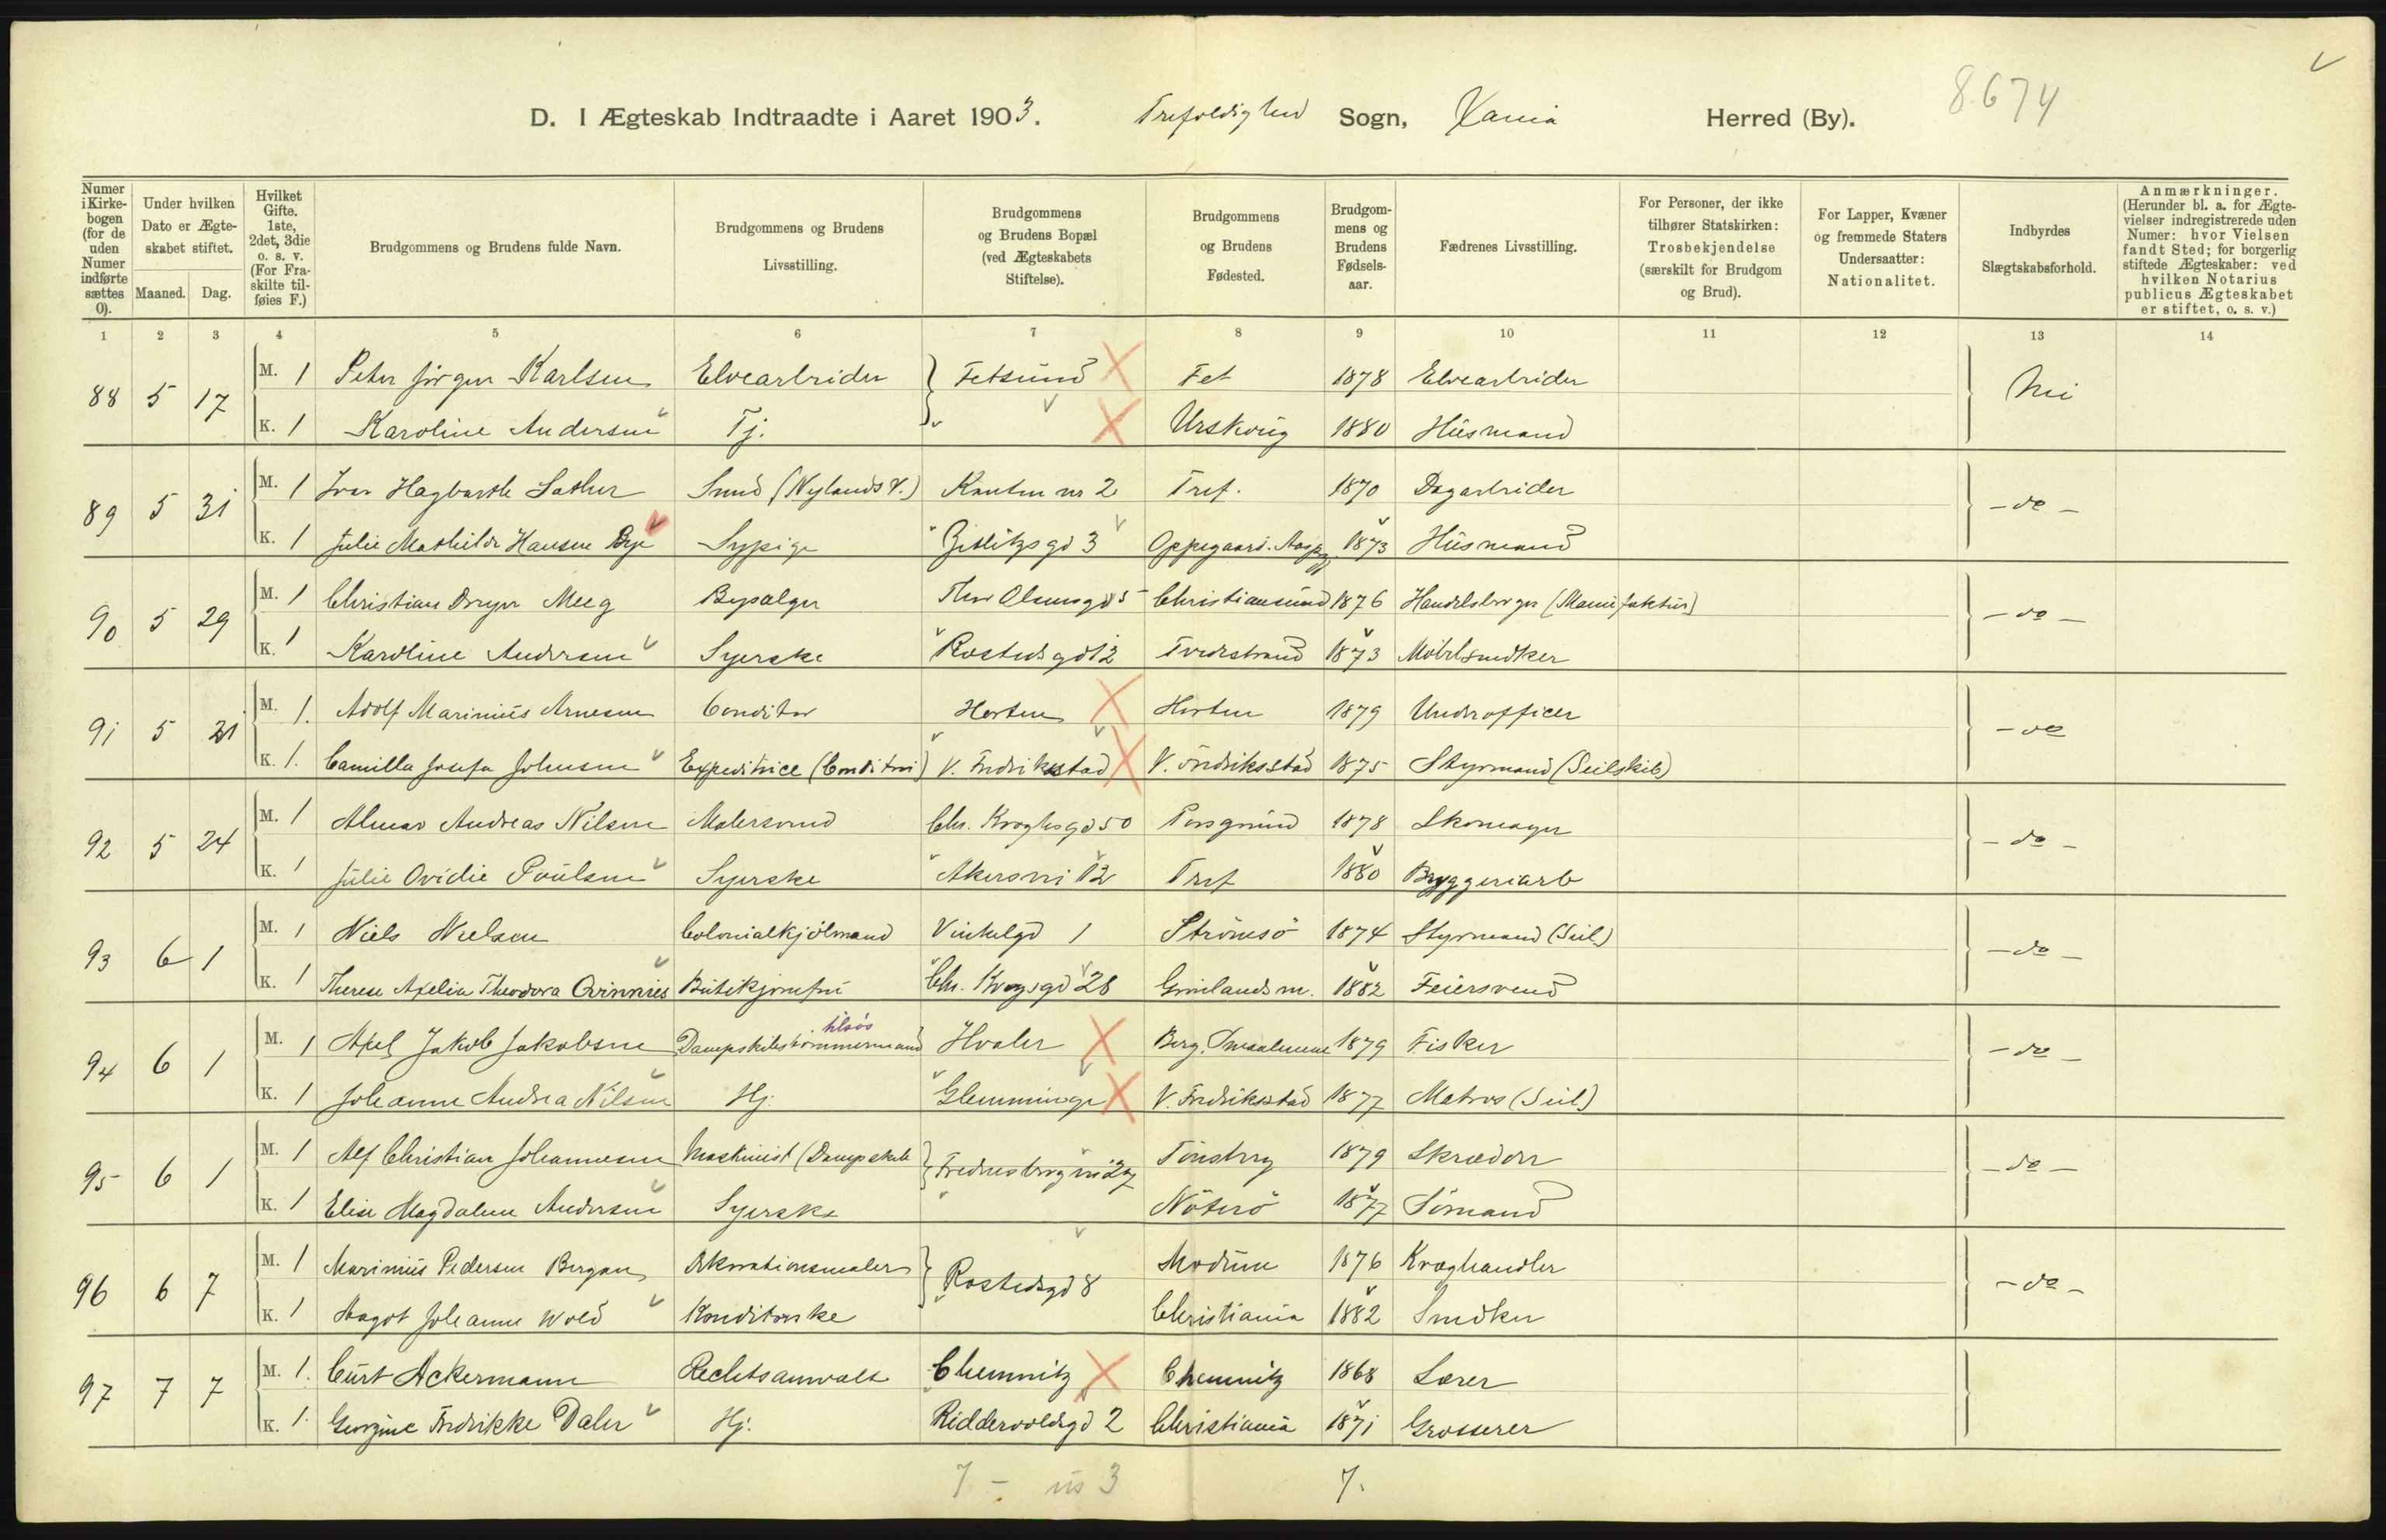 8.674
D. I Ægteskab Indtraadte i Aaret 1903. Trefoldighed Sogn, Xania Herred (By).
Numer i Kirkebogen (for de uden Numer indførte sættes 0).
Under hvilken Dato er Ægteskabet stiftet.
Maaned. Dag.
Hvilket Gifte. 1ste, 2det, 3die o. s. v. (For Fraskilte tilføies F.)
Brudgommens og Brudens fulde Navn.
Brudgommens og Brudens Livsstilling.
Brudgommens og Brudens Bopæl (ved Ægteskabets Stiftelse).
Brudgommens og Brudens Fødested.
Brudgommens og Brudens Fødselsaar.
Fædrenes Livsstilling.
For Personer, der ikke tilhører Statskirken: Trosbekjendelse (særskilt for Brudgom og Brud).
For Lapper, Kvæner og fremmede Staters Undersaatter: Nationalitet.
Indbyrdes Slægtskabsforhold.
Anmærkninger. (Herunder bl. a. for Ægtevielser indregistrerede uden Numer: hvor Vielsen fandt Sted; for borgerlig stiftede Ægteskaber: ved hvilken Notarius publicus Ægteskabet er stiftet, o. s. v.)
1 2 3 4 5 6 7 8 9 10 11 12 13 14
88 5 17 M. 1 Peter Jørgen Karlsen Elvearbeider Fetsund Fet 1878 Elvearbeider Nei
K. 1 Karoline Andersen Tj. Urskoug 1880 Husmand
89 5 31 M. 1 Ivar Hagbarth Sather Smed (Nylands V.) Kanten nr 2 Tref. 1870 Dagarbeider - do -
K. 1 Julie Mathilde Hansen Bye Sypige Zetlitzgd 3 Oppegaard. 1873 Husmand
90 5 29 M. 1 Christian Dreyer Meeg Bypalger Thor Olsensgd 5 Christiansund 1876 Handelsborger (Manufaktur) - do -
K. 1 Karoline Andersen Syerske Rostedsgd 12 Tvedestrand 1873 Møbelsnedker
91 5 21 M. 1. Adolf Marinius Arnesen Conditor Horten Horten 1879 Underofficer - do
K. 1. Camilla Josefa Johnsen Expeditrice (Conditori) V. Fredriksstad V. Fredriksstad 1875 Styrmand (Seilskib)
92 5 24 M. 1 Almar Andreas Nilsen Malersvend Chr. Kroghsgd 50 Porsgrund 1878 Skomager - do -
K. 1 Julie Ovidie Poulsen Syerske Akersvei 12 Tref 1880 Bryggeriarb
93 6 1 M. 1 Niels Nielsen Colonialkjølmand Vinkelgd 1 Strømsø 1874 Styrmand (Seil) - do -
K. 1 Therese Axelia Theodora Qvinnies Butikjomfru Chr. Krogsgd 28 Grinlands m. 1882 Feiersvend
94 6 1 M. 1 Axel Jakob Jakobsen Dampskibstømmermand tilsøs Hvaler Berg. Smaalenene 1879 Fisker - do -
K. 1 Johanne Andrea Nilsen Hj. Glemminge V. Fredriksstad 1877 Matros (Seil)
95 6 1 M. 1 Alf Christian Johannesen Maskinist (Dampskib Fredensborgvei 27 Tønsberg 1879 Skrædder - do -
K. 1 Elise Magdalene Andersen Syerske Nøterø 1877 Sømand
96 6 7 M. 1 Marinius Pedersen Bergan Dekorationsmaler Rostedsgd 8 Modum 1876 Kvæghandler - do -
K. 1 Magot Johanne Wold Konditorske Christiania 1882 Snedker
97 7 7 M. 1. Curt Ackermann Rechtsanwalt Chemnitz Chemnitz 1868 Lærer
K. 1. Georgine Fredrikke Daler Hj. Riddervoldsgd 2 Christiania 1871 Grosserer
7 - us 3 7.